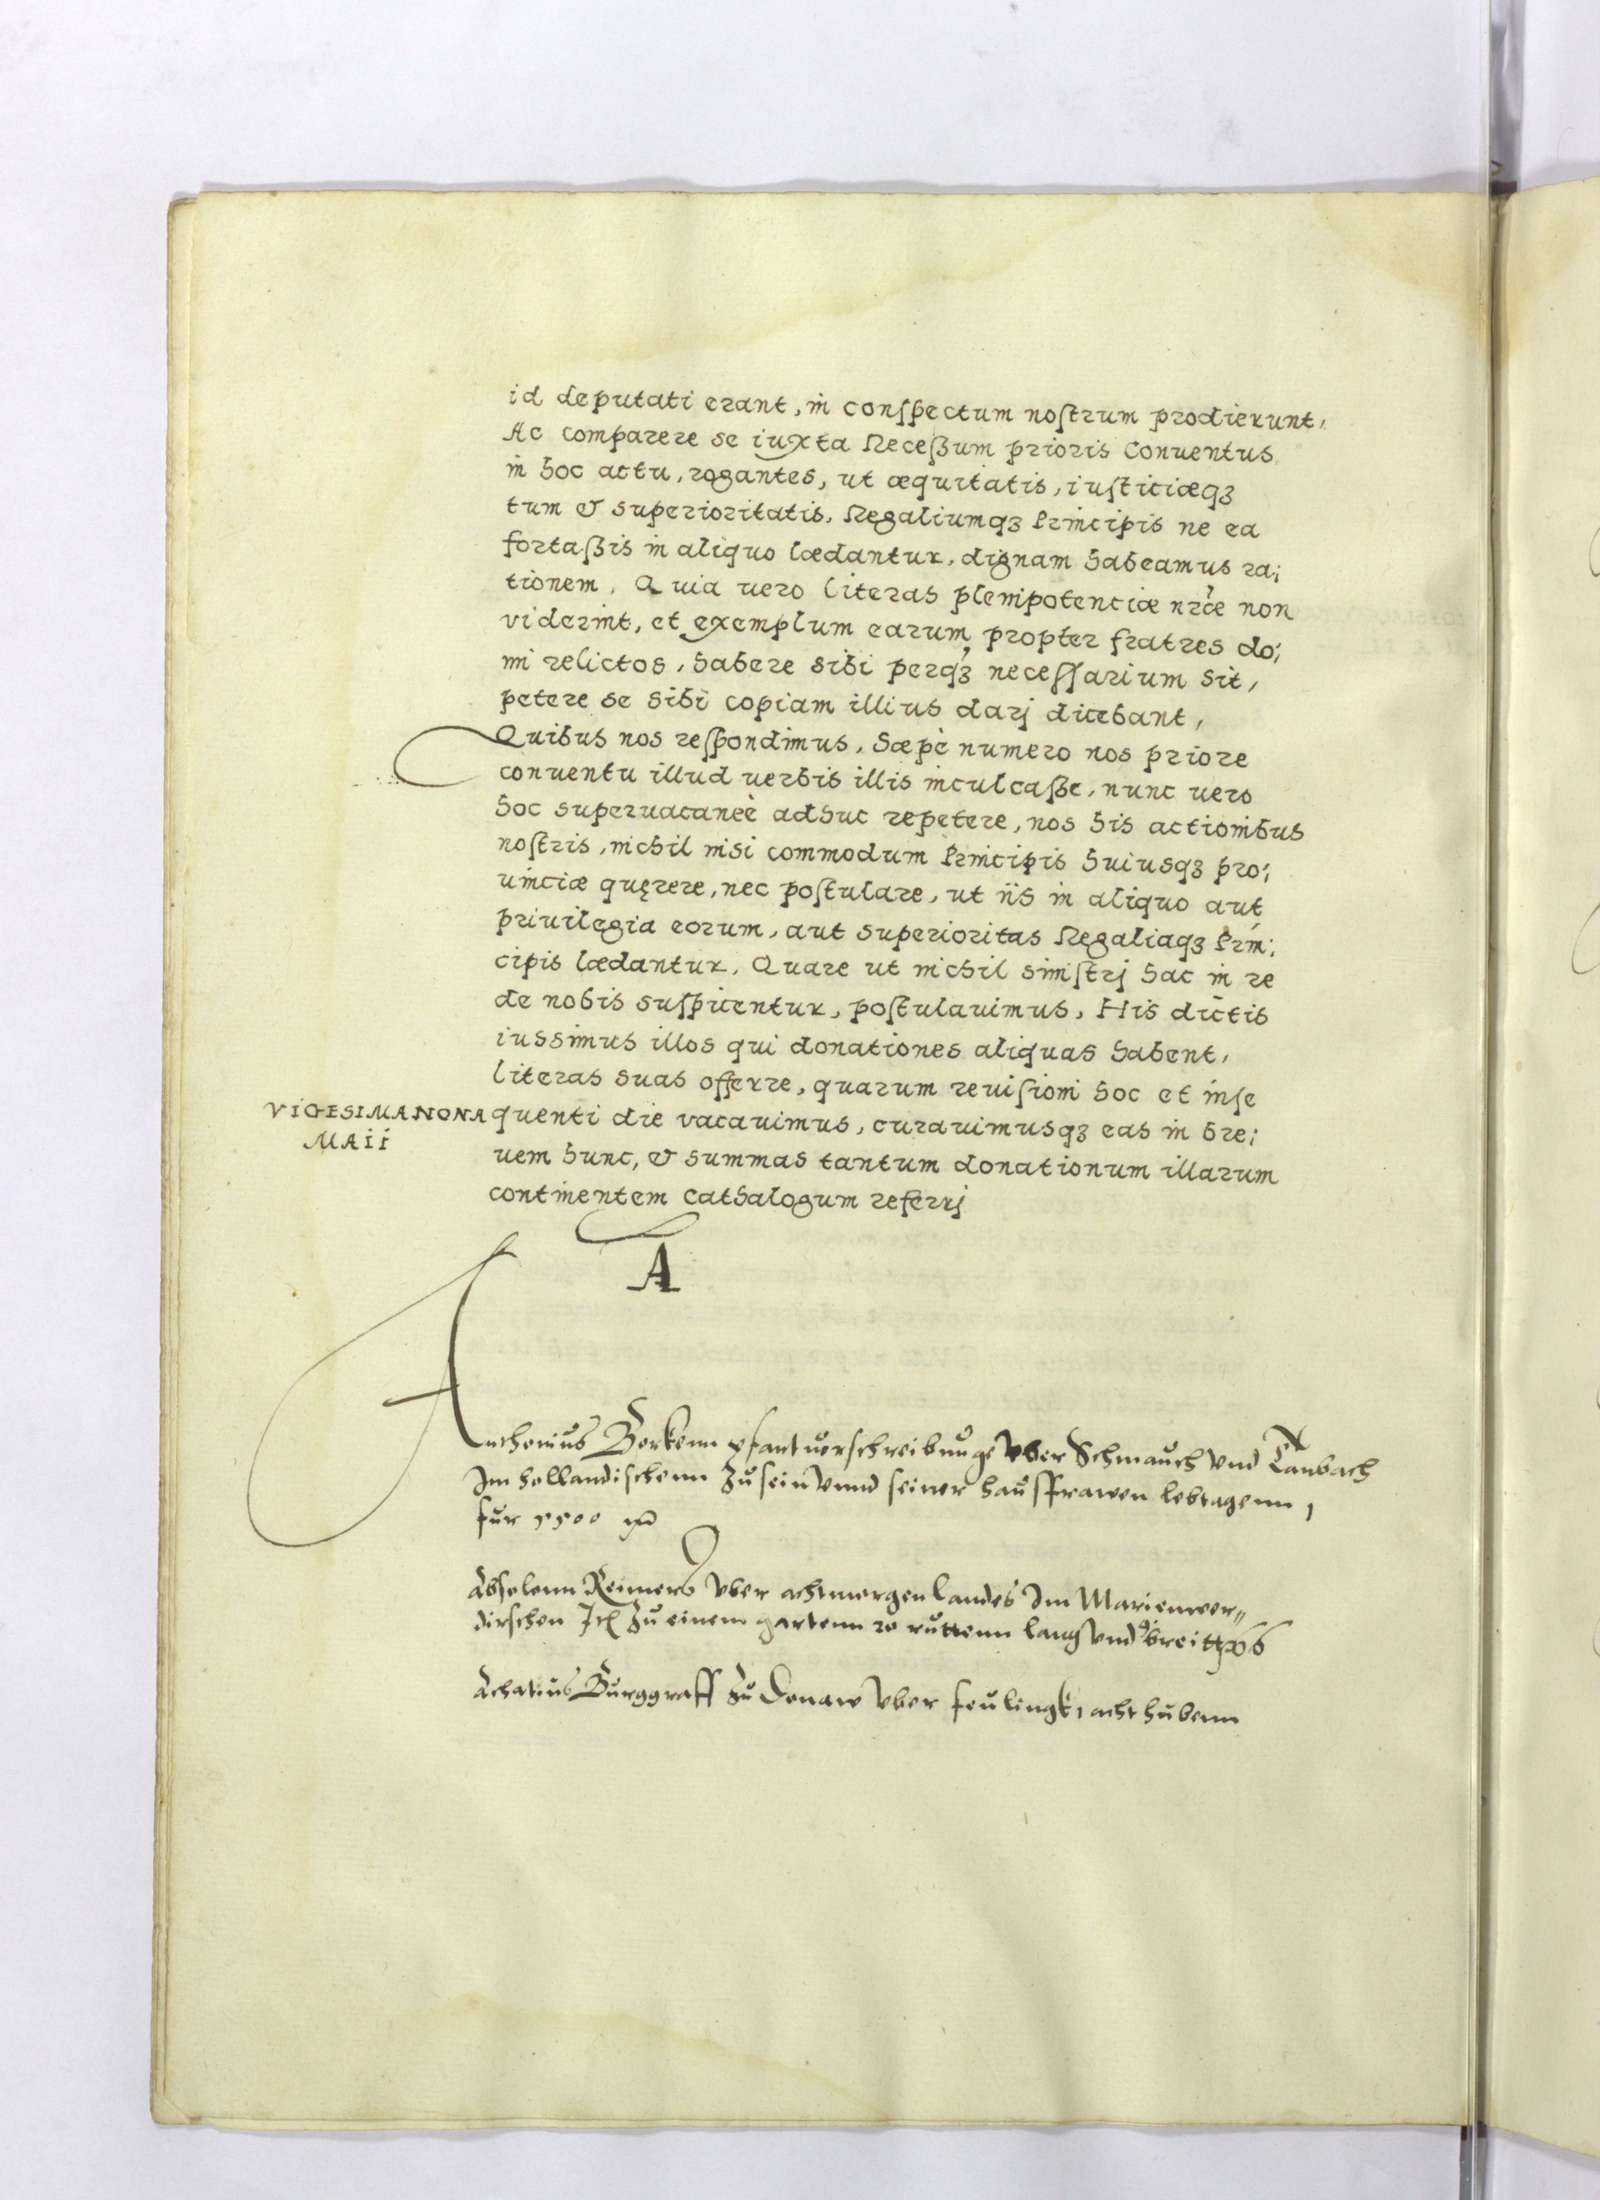 id deputati erant, in conspectum nostrum prodierunt,
Ac comparere se iuxta Recessum prioris Conuentus
in hoc actu, rogantes, ut æquitatis, iusticiæqз
tum & superioritatis, Regaliumqз Principis ne ea
fortaßis in aliquo lædantur, dignam habeamus ra;
tionem. Quia uero literas plenipotenciæ nr̃æ non
viderint, et exemplum earum propter fratres do;
mi relictos, habere sibi perqз necessarium sit,
petere se sibi copiam illius darj dicebant,
Quibus nos respondimus, Sæpè numero nos priore
conuentu illud uerbis illis inculcaße, nunc uero
hoc superuacaneè adhuc repetere, nos his actionibus
nostris, nichil nisi commodum Principis huiusqз pro;
uinciæ quęrere, nec postulare, ut iis in aliquo aut
priuilegia eorum, aut superioritas Regaliaqз Prin;
cipis lædantur. Quare ut nichil sinistrj hac in re
de nobis suspicentur, postulauimus, His dictis
iussimus illos qui donationes aliquas habent,
literas suas offerre, quarum reuisioni hoc et inse
VIGESIMA NONA quenti die vacauimus, curauimusqз eas in bre;
MAII
uem hunc, & summas tantum donationum illarum
continentem Cathalogum referrj
A
Anthonius Borkenn pfantuorschreibunge vber Schmauch vnd Taubach
Im hollandischenn zu sein vnnd seiner hausfrawen lebtagenn,
fur 5500
Absolonn Reimers vber acht morgen landes Im Marienwer„
dirschen zu einem gartenn 20 ruttenn lang vnd 9 breitt
Achatius Burggraff zu Donaw vber feulingk, acht hubenn